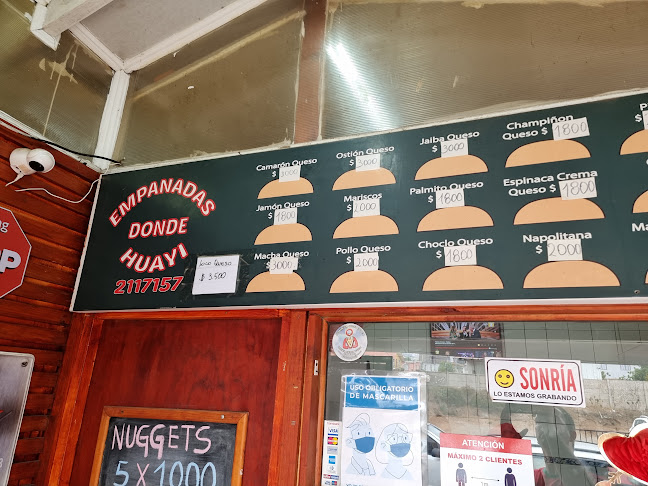 EMPANADAS
DONDE
HUAYI
2117157
Loco Queso
$ 3.500
Camarón Queso
$ 3000
Ostión Queso
$ 3000
Jaiba Queso
$ 3000
Champiñon
Queso $ 1800
Jamón Queso
$ 1800
Mariscos
$ 2000
Palmito Queso
$ 1800
Espinaca Crema
Queso $ 1800
Macha Queso
$ 3000
Pollo Queso
$ 2000
Choclo Queso
$ 1800
Napolitana
$ 2000
NUGGETS
5 x 1000
USO OBLIGATORIO
DE MASCARILLA
VISA
SONRÍA
LO ESTAMOS GRABANDO
ATENCIÓN
MÁXIMO 2 CLIENTES